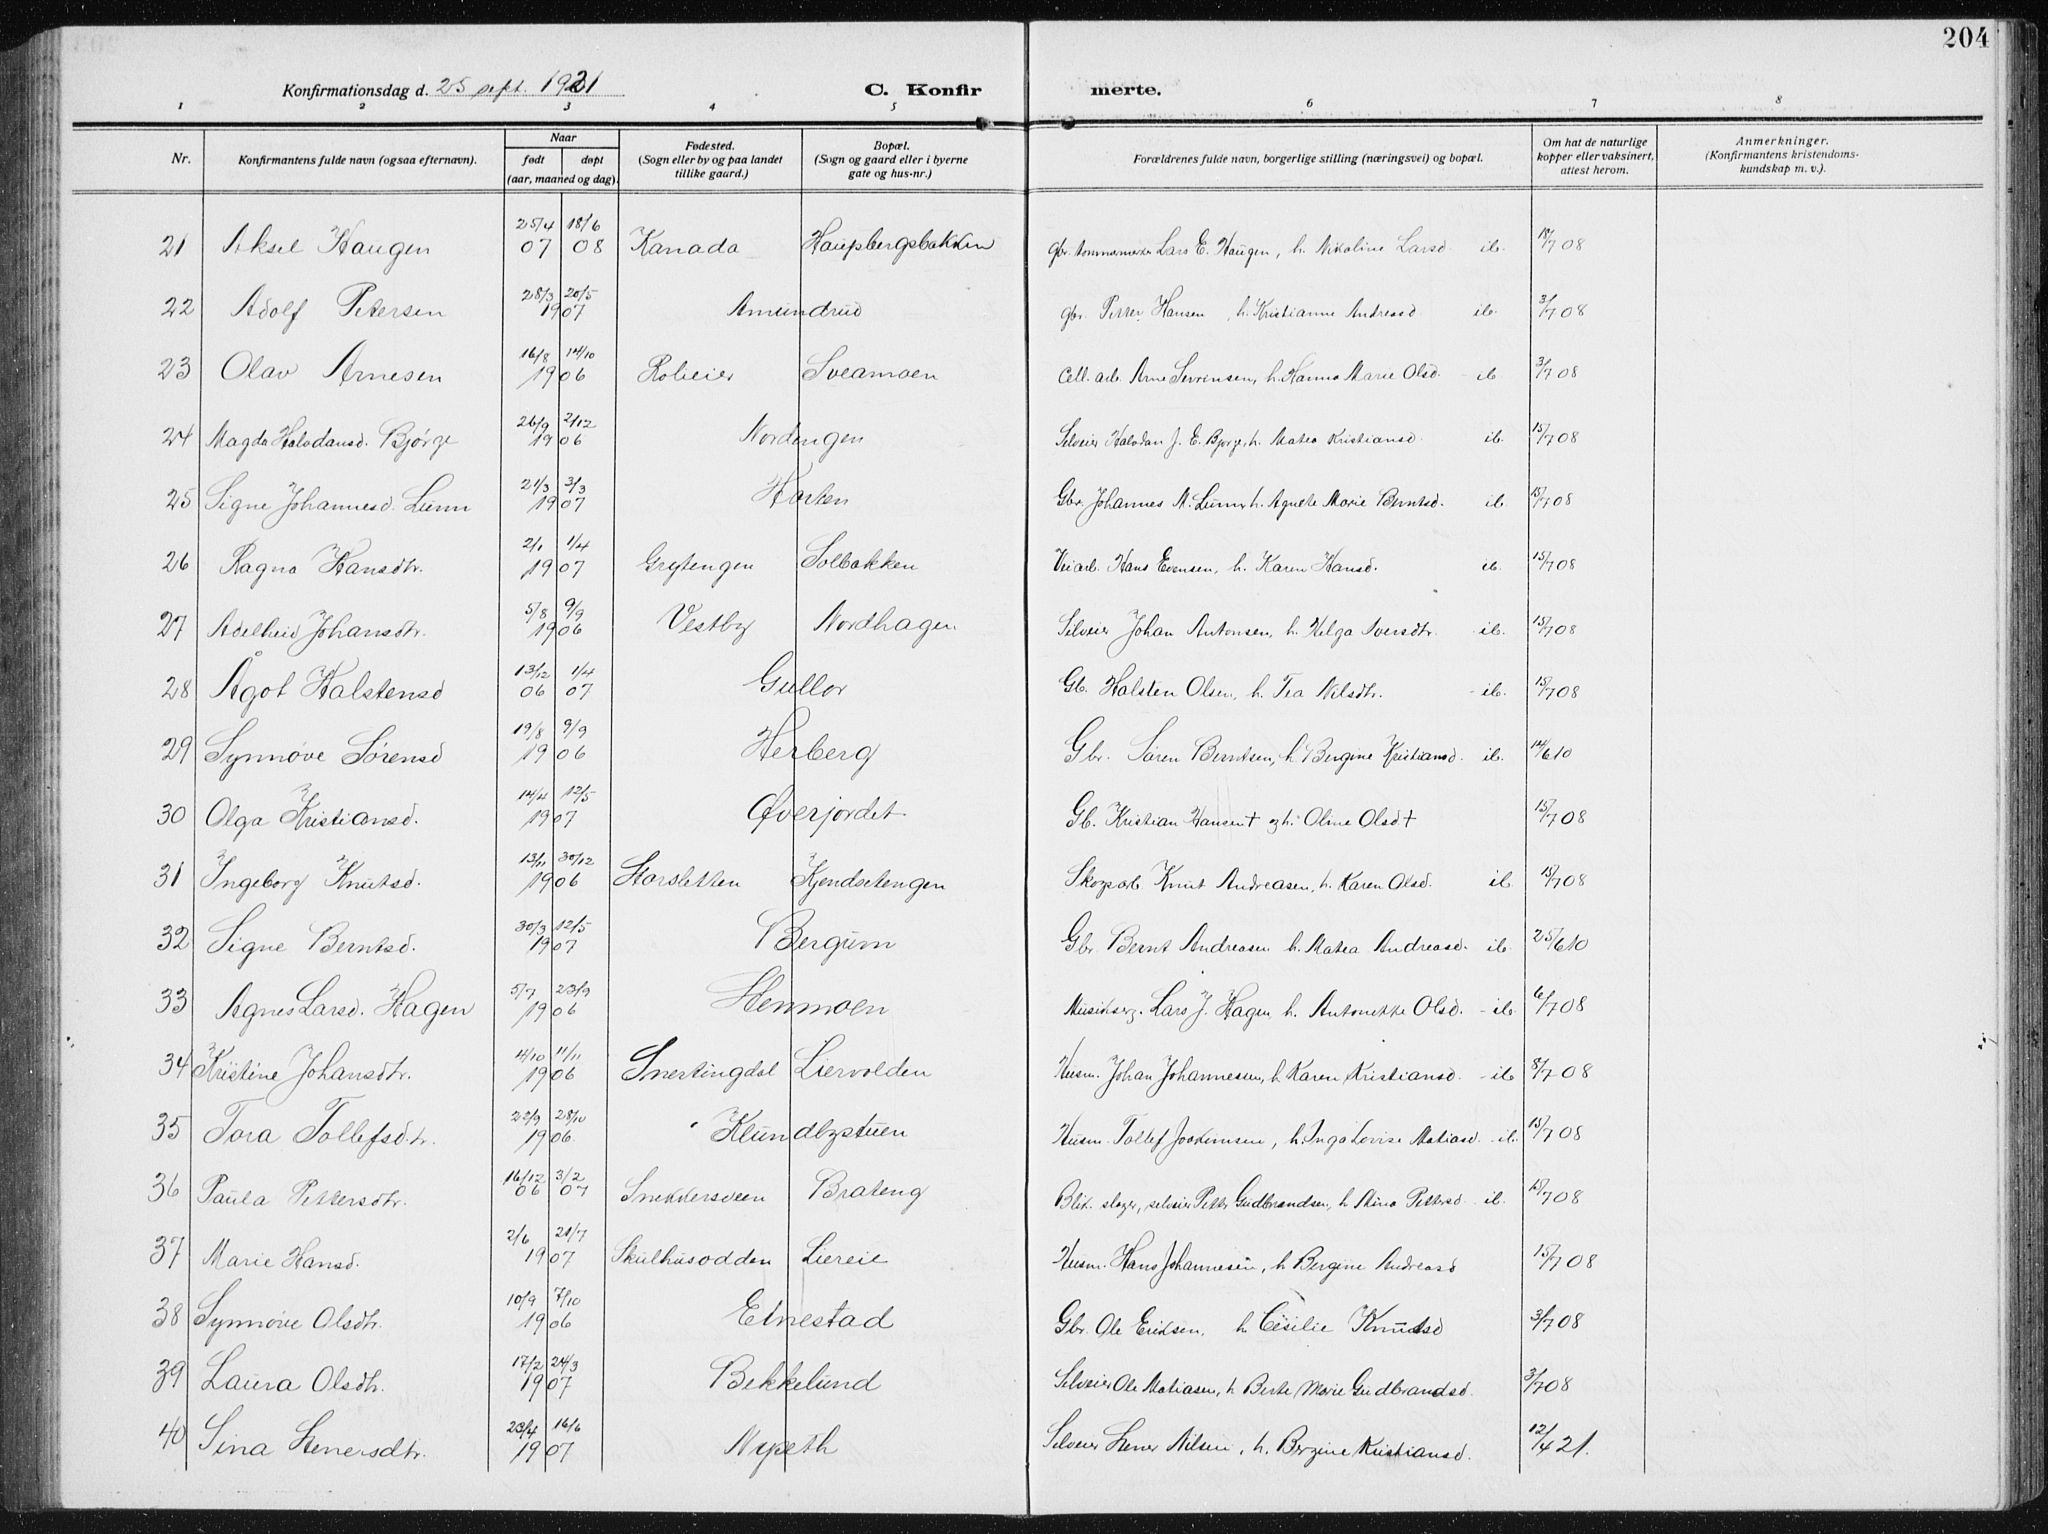 204
Konfirmationsdag d. 25 sept. 1921
C. Konfir merte.
1 2 3 4 5 6 7 8
Nr. Konfirmantens fulde navn (ogsaa efternavn). Naar født døpt (aar, maaned og dag). Fødested. (Sogn eller by og paa landet tillike gaard.) Bopæl. (Sogn og gaard eller i byerne gate og hus-nr.) Forældrenes fulde navn, borgerlige stilling (næringsvei) og bopæl. Om hat de naturlige kopper eller vaksinert, attest herom. Anmerkninger. (Konfirmantens kristendoms-kundskap m. v.).
21 Aksel Haugen 25/4 07 18/6 08 Kanada Haugsbergsbakken Lars E. Haugen, h. Nikoline Larsd. ib. 18/7 08
22 Adolf Petersen 28/3 20/5 1907 Amundrud gbr. Petter Hansen, h. Kristianne Andreasd ib. 3/7 08
23 Olav Arnesen 16/8 14/10 1906 Roleier Sveamoen Cell. arb. Arne Severinsen, h. Hanna Marie Olsd. - ib 3/7 08
24 Magda Halvdansd. Bjørge 26/9 2/12 1906 Nordengen Selveier Halvdan J. E. Bjørge, h. Matea Kristiansd. ib. 15/7 08
25 Signe Johannesd. Lunn 21/3 3/3 1907 Gbr. Johannes M. Lunn, h. Agnete Marie Berntsd. ib. 15/7 08
26 Ragna Hansdtr. 2/1 1/4 1907 Grytengen Solbakken Veiarb. Hans Evensen, h. Karen Hansd. ib. 15/7 08
27 Adelheid Johansdtr. 5/8 9/9 1906 Vestby Nordhagen Selveier Johan Antonsen, h. Helga Iversdtr. - ib. 15/7 08
28 Ågot Halstensd 13/12 06 1/4 07 Gullor Gb. Halsten Olsen, h. Tea Nilsdtr. - ib. 15/7 08
29 Synnøve Sørensd 19/8 9/9 1906 Herberg Gbr. Søren Berntsen, h. Bergine Kristiansd. ib. 14/6 10
30 Olga Kristiansd. 14/4 12/5 1907 Øverjordet Gb. Kristian Hansen † og h. Oline Olsd † 15/7 08
31 Ingeborg Knutsd. 13/11 30/12 1906 Storsletten Kjendsetengen Skogsarb Knut Andreasen, h. Karen Olsd. ib. 15/7 08
32 Signe Berntsd. 30/3 12/5 1907 Bergum Gbr Bernt Andreasen h. Matea Andreasd. ib. 25/6 10
33 Agnes Larsd. Hagen 5/7 23/9 1906 Henmoen Musikserg. Lars J. Hagen, h. Antonette Olsd. - ib. 6/7 08
34 Kristine Johansdtr. 4/10 11/11 1906 Snertingdal Liervolden Husm. Johan Johannesen, h Karen Kristiansd. - ib 8/7 08
35 Tora Tollefsdtr. 22/9 28/10 1906. Klundbystuen Husm. Tollef Joakimsen, h. Inga Lovise Matiasd - ib. 15/7 08
36 Paula Pettersdtr. 16/12 06 3/2 07 Snekkersveen Brateng Blik. slager, selveier Petter Gudbrandsen, h Stina Pettersd - ib. 15/7 08
37 Marie Hansd. 2/6 21/7 1907 Skulhusodden Liereie Husm. Hans Johannesen, h Bergine Andreasd 15/7 08
38 Synnøve Olsdtr. 10/9 7/10 1906 Etnestad Gbr. Ole Eriksen, h Cesilie Knudsd 3/7 08
39 Laura Olsdtr. 17/2 24/3 1907 Bekkelund Selveier Ole Matiasen, h Berte Marie Gudbrandsd. 3/7 08
40 Sina Stenersdtr. 23/4 16/6 1907 Nypeth Selveier Stener Nilsen, h. Bergine Kristiansd. 12/4 21.